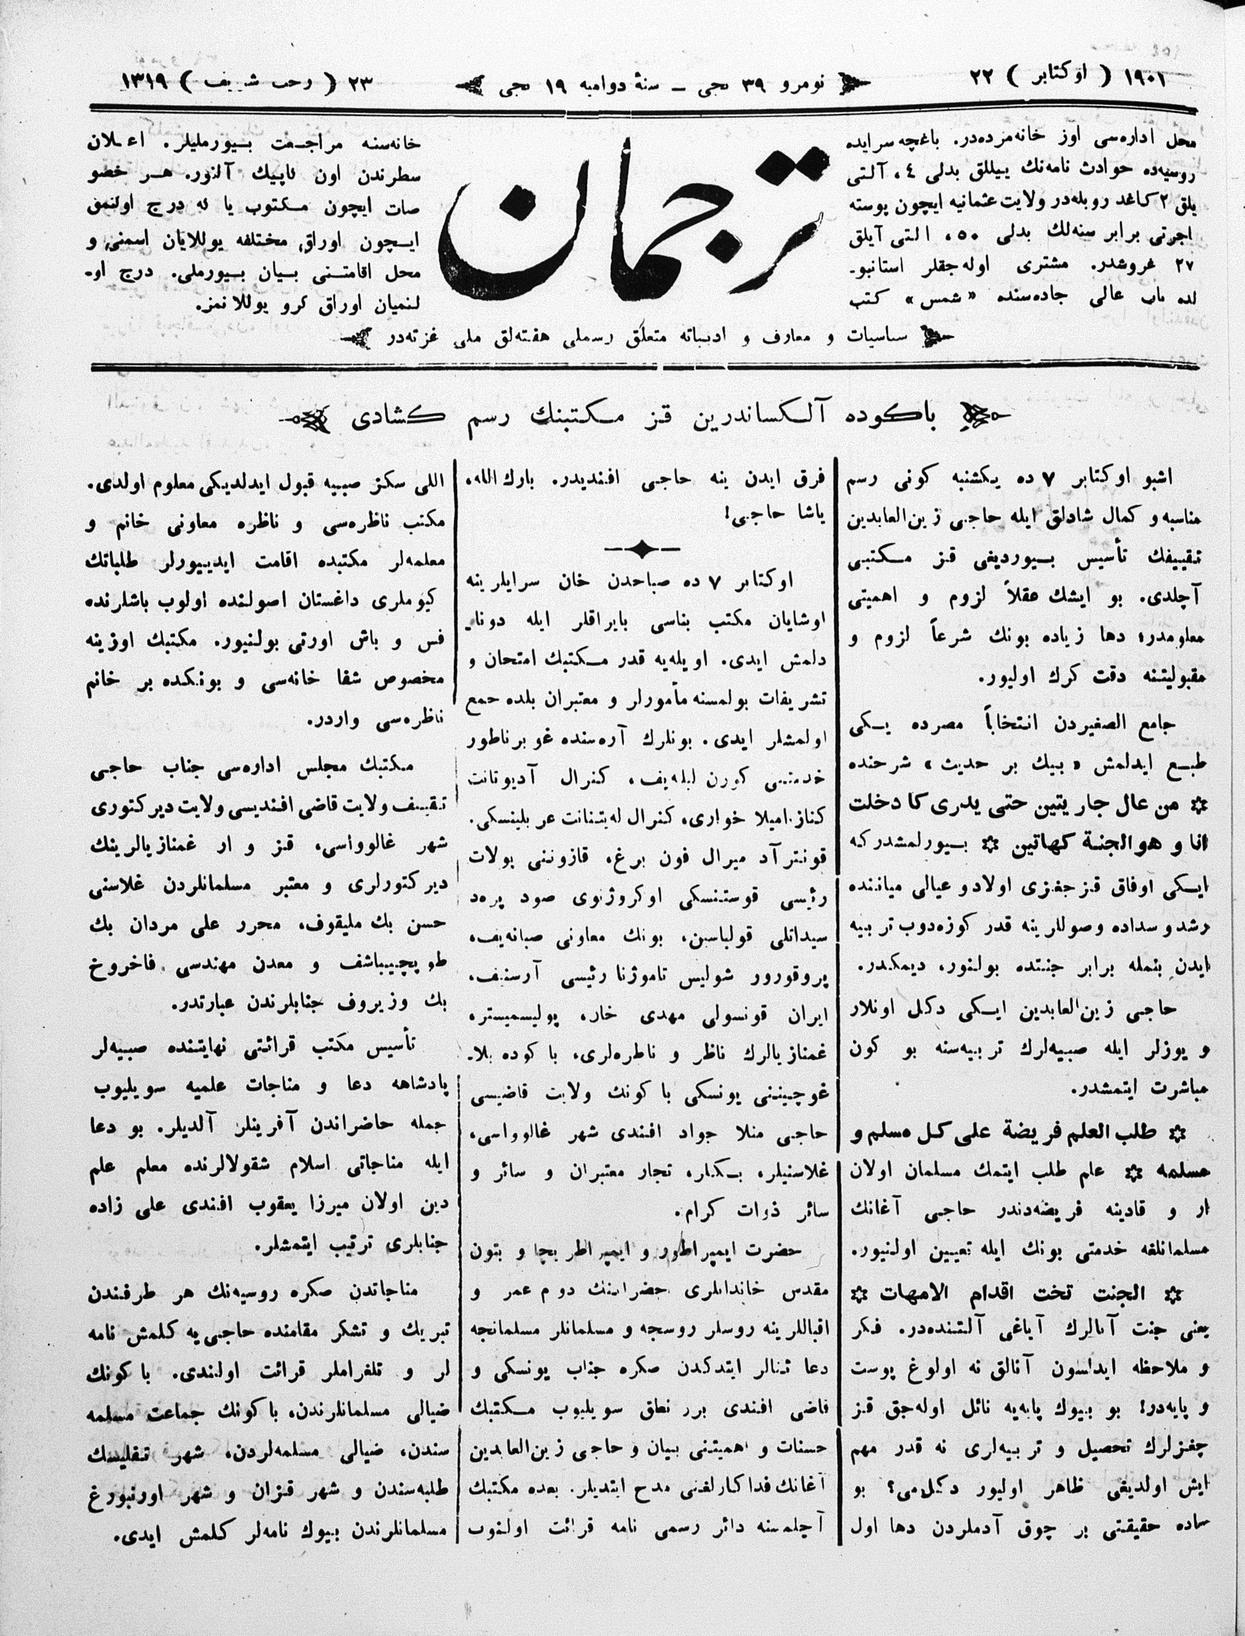 ١٩٠١ ( اوكتابر ) ٢٢
نومرو ٣٩ نجى ــ سنهٔ دواميه ١٩ نجى
٢٣ ( رجب شريف ) ١٣١٩
محل اداره‌سى اوز خانه‌مزده‌در. باغچه سرايده
روسيه‌ده حوادث نامه‌نك ييللق بدلى ٤، آلتى
يلق ٢ كاغد روبله‌در ولايت عثمانيه ايچون پوسته
اجرتى برابر سنه‌لك بدلى ٥٠، التى آيلق
٢٧ غروشدر. مشترى اوله‌جقلر استانبو-
لده باب عالى جاده‌سنده «شمس» كتب
ترجمان
خانه‌سنه مراجعت بيورمليلر. اعلان
سطرندن اون قاپيك آلنور. هر خصو
صات ايچون مكتوب يا له درج اولنمق
ايچون اوراق مختلفه يوللايان اسمنى و
محل اقامتنى بيان بيورملى. درج او-
لنميان اوراق كرو يوللانمز.
سياسيات و معارف و ادبياته متعلق رسملى هفته‌لق ملى غزته‌در
باكوده آلكساندرين قز مكتبنك رسم كشادى
اشبو اوكتابر ٧ ده يكشنبه كونى رسم
مناسبه و كمال شادلق ايله حاجى زين‌العابدين
تقييفك تأسيس بيورديغى قز مكتبى
آچلدى. بو ايشك عقلاً لزوم و اهميتى
معلومدر؛ دها زياده بونك شرعاً لزوم و
مقبوليتنه دقت كرك اوليور.
جامع الصغيردن انتخاباً مصرده يكى
طبع ايدلمش «بيك بر حديث» شرحنده
۞ من عال جاريتين حتى يدرى كا دخلت
انا و هو الجنة كهاتين ۞ بيورلمشدركه
ايكى اوفاق قزجغزى اولاد و عيالى مياننده
رشد و سداده وصولارينه قدر كوزه‌دوب تربيه
ايدن بنمله برابر جنتده بولنور، ديمكدر.
حاجى زين‌العابدين ايكى دكل اونلار
و يوزلر ايله صبيه‌لرك تربيه‌سنه بو كون
مباشرت ايتمشدر.
۞ طلب العلم فريضة على كل مسلم و
مسلمه ۞ علم طلب ايتمك مسلمان اولان
ار و قادينه فريضه‌دندر حاجى آغانك
مسلمانلغه خدمتى بونك ايله تعيين اولنيور.
۞ الجنت تخت اقدام الامهات ۞
يعنى جنت آنالرك آياغى آلتنده‌در. فكر
و ملاحظه ايدلسون آنالق نه اولوغ پوست
و پايه‌در! بو بيوك پايه‌يه نائل اوله‌جق قز
چغزلرك تحصيل و تربيه‌لرى نه قدر مهم
ايش اولديغى ظاهر اوليور دكل‌مى؟ بو
ساده حقيقتى بر چوق آدملردن دها اول
فرق ايدن ينه حاجى افنديدر. بارك الله،
ياشا حاجى!
اوكتابر ٧ ده صباحدن خان سرايلرينه
اوشايان مكتب بناسى بايراقلر ايله دونا-
دلمش ايدى. اويله‌يه قدر مكتبك امتحان و
تشريفات بولمسنه مأمورلر و معتبران بلده جمع
اولمشلر ايدى. بونلرك آره‌سنده غوبرناطور
خدمتى كورن ليله‌يف، كنرال آديوتانت
كناز اميلا خوارى، كنرال له‌يتنانت عربلينسكى.
قونترآد ميرال فون برغ، قازونى پولات
رئيسى قوستنسكى اوكروژنوى صود پره‌د
سيداتلى قولياسن، بونك معاونى صبانه‌يف،
پروقورور شوليس تاموژنا رئيسى آرسنف،
ايران قونسولى مهدى خان، پوليسميستر،
غمنازيالرك ناظر و ناطره‌لرى، باكوده بلا-
غوچيننى يونسكى باكونك ولايت قاضيسى
حاجى منلا جواد افندى شهر غالوواسى،
غلاسنيلر، بكلر، تجار معتبران و سائر و
سائر ذوات كرام.
حضرت ايمپراطور و ايمپراطريچا و بتون
مقدس خاندانلرى حضراتنك دوم عمر و
اقباللرينه روسلر روسجه و مسلمانلر مسلمانجه
دعا ثنالر ايتدكدن صكره جناب يونسكى و
قاضى افندى برر نطق سويليوب مكتبك
حسنات و اهميتنى بيان و حاجى زين‌العابدين
آغانك فداكارلغنى مدح ايتديلر. بعده مكتبك
آچلمسنه دائر رسمى نامه قرائت اولنوب
اللى سكز صبيه قبول ايدلديكى معلوم اولدى.
مكتب ناظره‌سى و ناظره معاونى خانم و
معلمه‌لر مكتبده اقامت ايدييورلر طلباتك
كيوملرى داغستان اصولنده اولوب باشلرنده
فس و باش اورتى بولنيور. مكتبك اوزينه
مخصوص شفا خانه‌سى و بونكده بر خانم
ناظره‌سى واردر.
مكتبك مجلس اداره‌سى جناب حاجى
تقييف ولايت قاضى افنديسى ولايت ديركتورى
شهر غالوواسى، قز و ار غمنازيالرينك
ديركتورلرى و معتبر مسلمانلردن غلاسنى
حسن بك مليقوف، محرر على مردان بك
طوپچيباشف و معدن مهندسى فاخروخ
بك وزيروف جنابلرندن عبارتدر.
تأسيس مكتب قرائتى نهايتنده صبيه‌لر
پادشاهه دعا و مناجات علميه سويليوب
جمله حاضراندن آفرينلر آلديلر. بو دعا
ايله مناجاتى اسلام شقولالرنده معلم علم
دين اولان ميرزا يعقوب افندى على زاده
جنابلرى ترتيب ايتمشلر.
مناجاتدن صكره روسيه‌نك هر طرفندن
تبريك و تشكر مقامنده حاجى‌يه كلمش نامه
لر و تلغراملر قرائت اولندى. باكونك
ضيالى مسلمانلرندن، باكونك جماعت مسلمه
سندن، ضيالى مسلمه‌لردن، شهر تفليسك
طلبه‌سندن و شهر قزان و شهر اورنبورغ
مسلمانلرندن بيوك نامه‌لر كلمش ايدى.